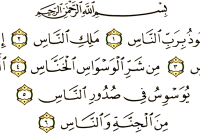 بِسْمِ اللَّهِ الرَّحْمَٰنِ الرَّحِيمِ
وذُ بِرَبِّ النَّاسِ ١ مَلِكِ النَّاسِ ٢
٣ مِن شَرِّ الْوَسْوَاسِ الْخَنَّاسِ ٤
يُوَسْوِسُ فِي صُدُورِ النَّاسِ ٥
مِنَ الْجِنَّةِ وَالنَّاسِ ٦